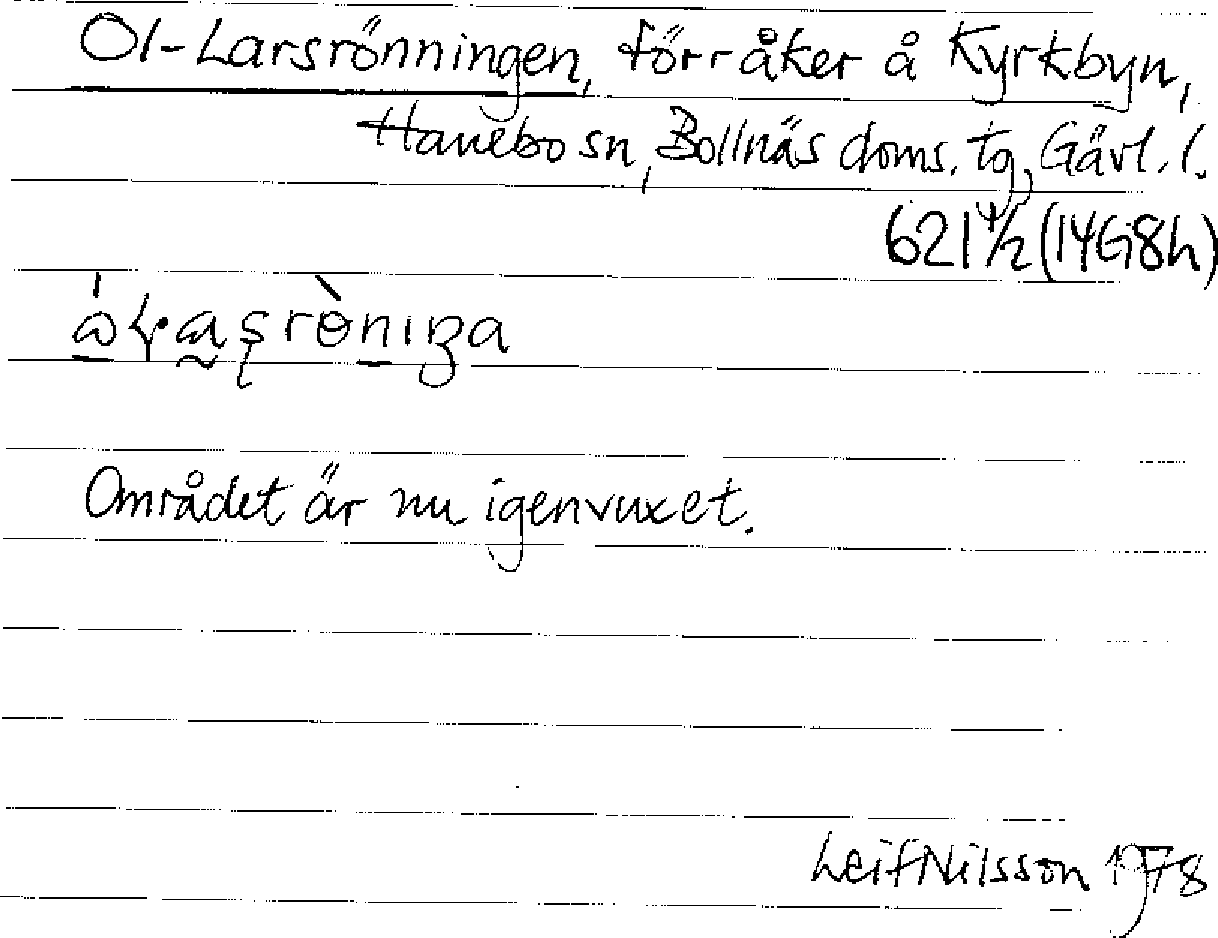 Ol-Larsrönningen, förr åker å Kyrkbyn,
Hanebo sn, Bollnäs doms. tg, Gävl. l.
621 4/2 (14G8h)
Området är nu igenvuxet.
Leif Nilsson 1978